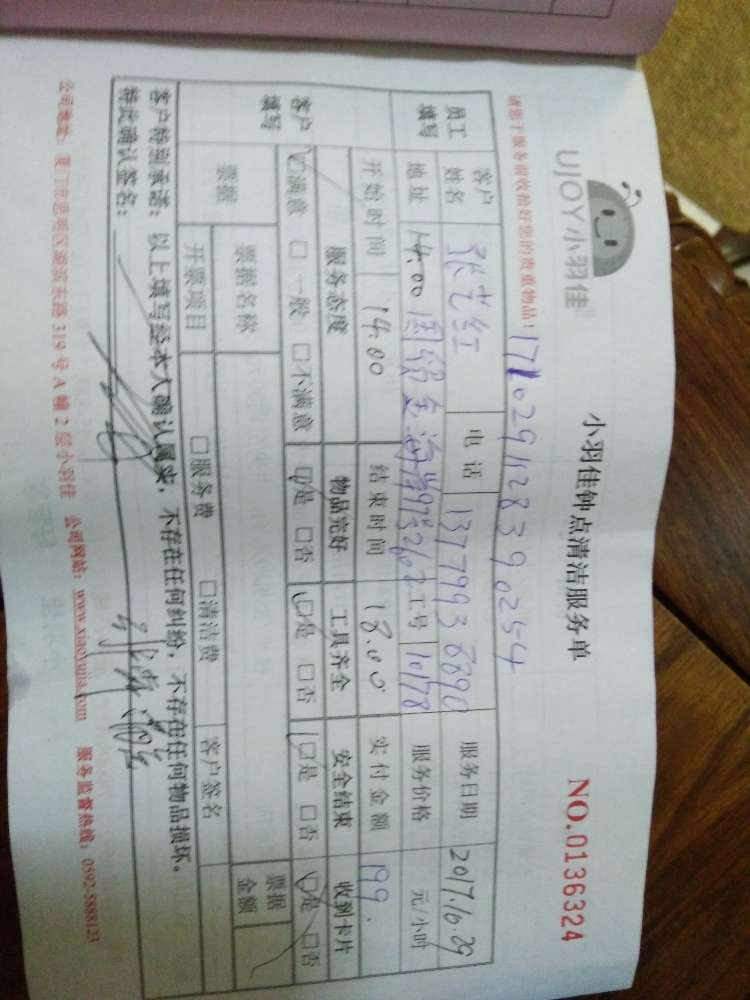 UJOY小羽佳
小羽佳钟点清洁服务单
NO.0136324
请您于服务前收拾好您的贵重物品！
1710291128390254
员工填写
客户姓名
张芝红
电话
13779938890
服务日期
2017.10.29
地址
14.00
工号
10178
服务价格
元/小时
开始时间
14.00
结束时间
18.00
实付金额
199.
客户填写
服务态度
物品完好
工具齐全
安全结束
收到卡片
☑满意 □一般 □不满意
☑是 □否
☑是 □否
☑是 □否
☑是 □否
票据
票据名称
票据金额
开票项目
□服务费 □清洁费
客户签名
客户特别承诺：以上填写经本人确认属实，不存在任何纠纷，不存在任何物品损坏。
特此确认签名：
公司地址：厦门市思明区湖滨东路319号A幢2层小羽佳 公司网站：www.xiaoyujia.com 服务监督热线：0592-5888123